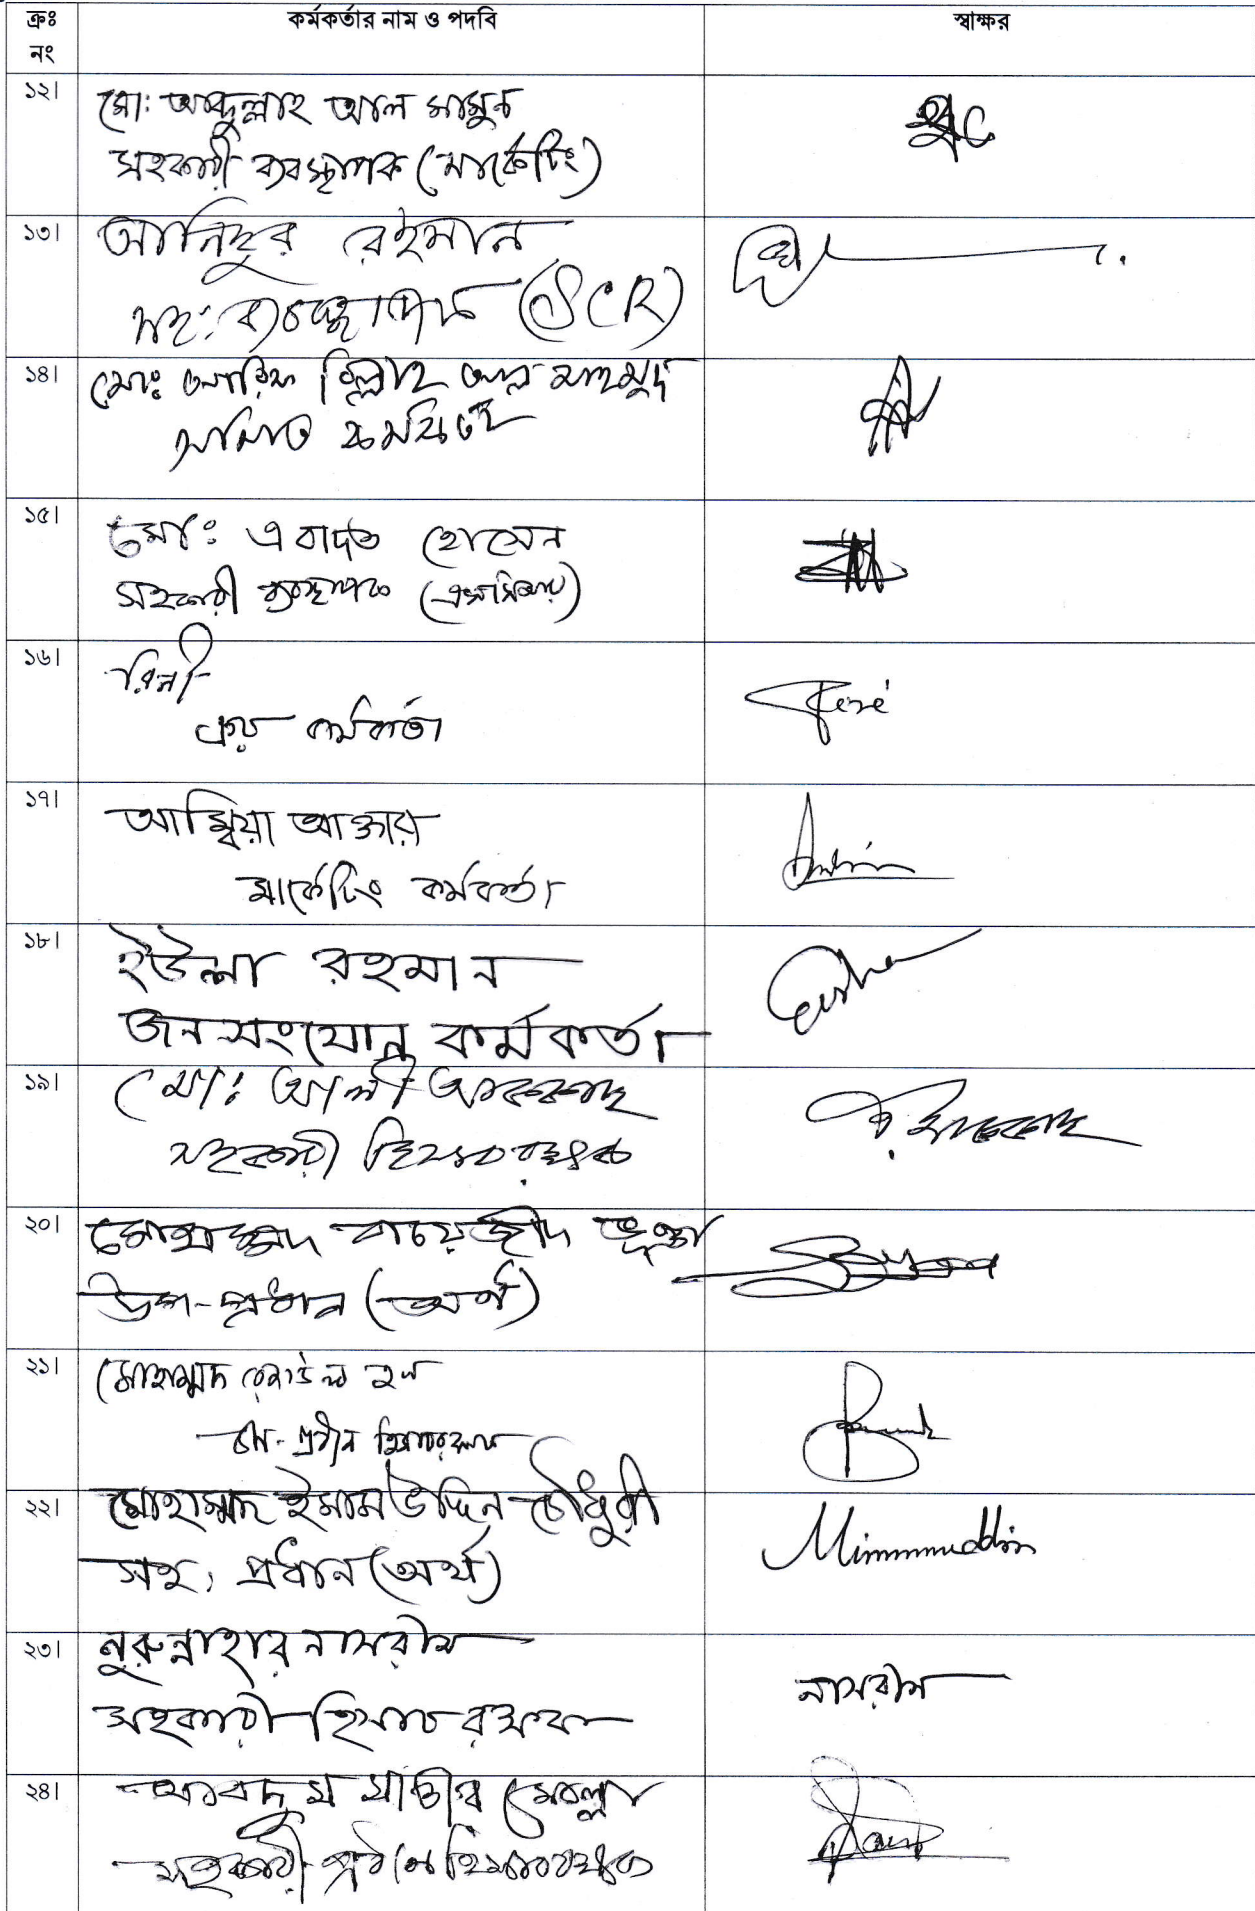 ক্রঃ নং কর্মকর্তার নাম ও পদবি স্বাক্ষর
১২। মো: আব্দুল্লাহ আল মামুন
সহকারী ব্যবস্থাপক (মার্কেটিং)
১৩। আনিছুর রহমান
সহ: ব্যবস্থাপক (SCR)
১৪। মোঃ আরিফ বিল্লাহ আল মাহমুদ
কর্মকর্তা
১৫। মোঃ এবাদত হোসেন
সহকারী ব্যবস্থাপক (এসসিআর)
১৬। রিনী
ক্রয় কর্মকর্তা
১৭। আম্বিয়া আক্তার
মার্কেটিং কর্মকর্তা
১৮। ইউলা রহমান
জনসংযোগ কর্মকর্তা
১৯। মো: আলী আককাছ
সহকারী হিসাবরক্ষক
২০। মোহাম্মদ বায়েজীদ ভূঞা
উপ-প্রধান (অর্থ)
২১। মোহাম্মদ হক
উপ-প্রধান হিসাবরক্ষক
২২। মোহাম্মদ ইমাম উদ্দিন চৌধুরী Mimmmuddin
সহ, প্রধান (অর্থ)
২৩। নুরুন্নাহার নাসরীন নাসরীন
সহকারী হিসাবরক্ষক
২৪। আবদুস সাত্তার মোল্লা
সহকারী প্রধান হিসাবরক্ষক